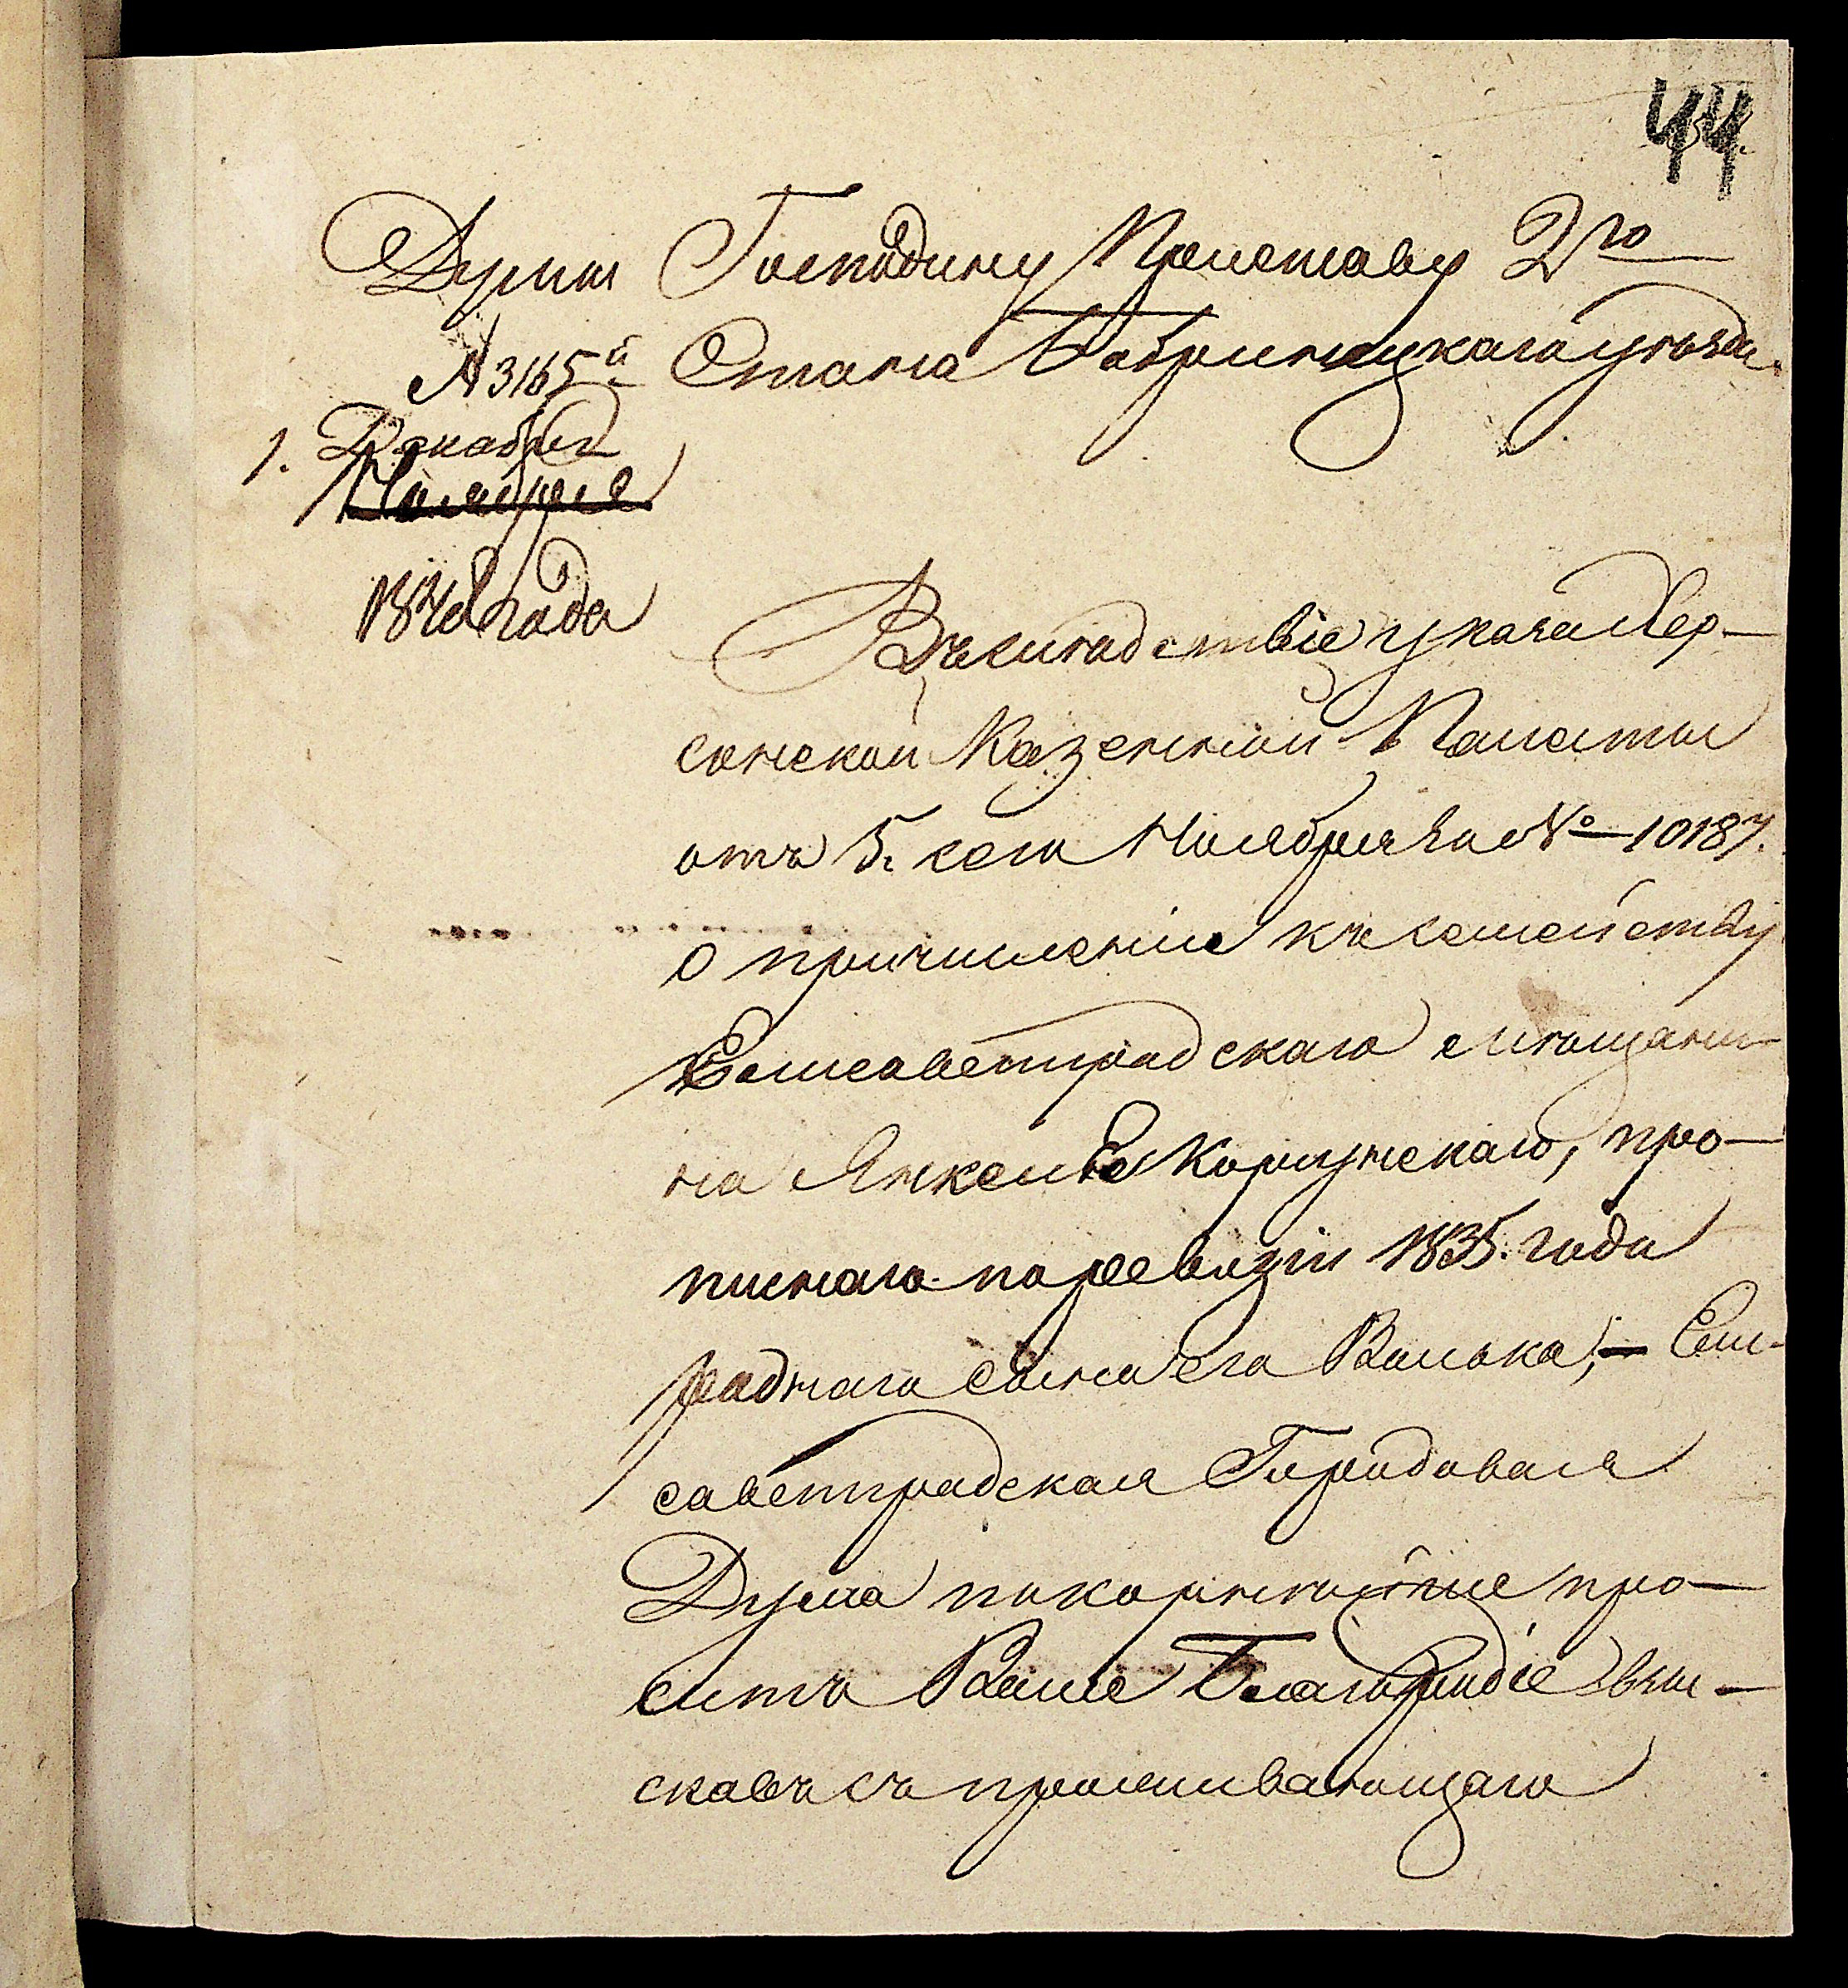 44
Думы
№ 3165й
1. Декабря
Ноября
184 года
Господину Приставу 2го
Стана Бобринецкаго уѣзда.
Въ слѣдствіе указа Хер-
сонской Казенной Палаты
отъ 5. сего Ноября за № 10187.
о причисленіи къ семейству
Елисаветградскаго мѣщани-
на Янкеля Корсунскаго, про-
писнаго по ревизіи 1835. года
роднаго сына его Волька, – Ели-
саветградская Городовая
Дума покорнѣйше про-
ситъ Ваше Благородіе взы-
скавъ съ проживающаго